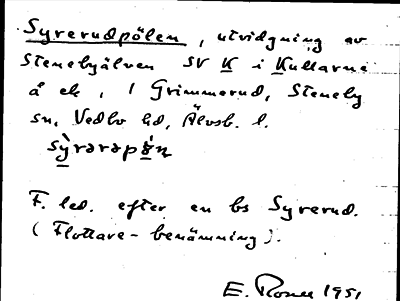 Syrerudpölen, utvidgning av
Stenebyälven SV K i Kullarna
å ek, i Grimmerud, Steneby
sn, Vedbo hd, Älvsb. l.
sỳrərəpö́ṇ
F. led. efter en bs Syrerud.
(Flottare-benämning).
E. 1951